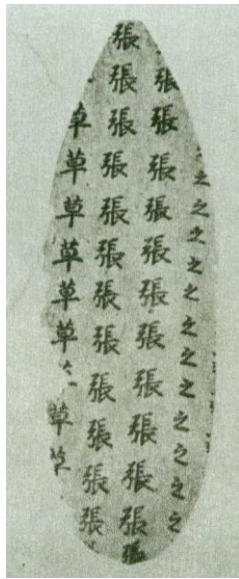 之之之之之之之之之之之之
張張張張張張張張張張
張張張張張張張張張張張張
草草草草草草草草